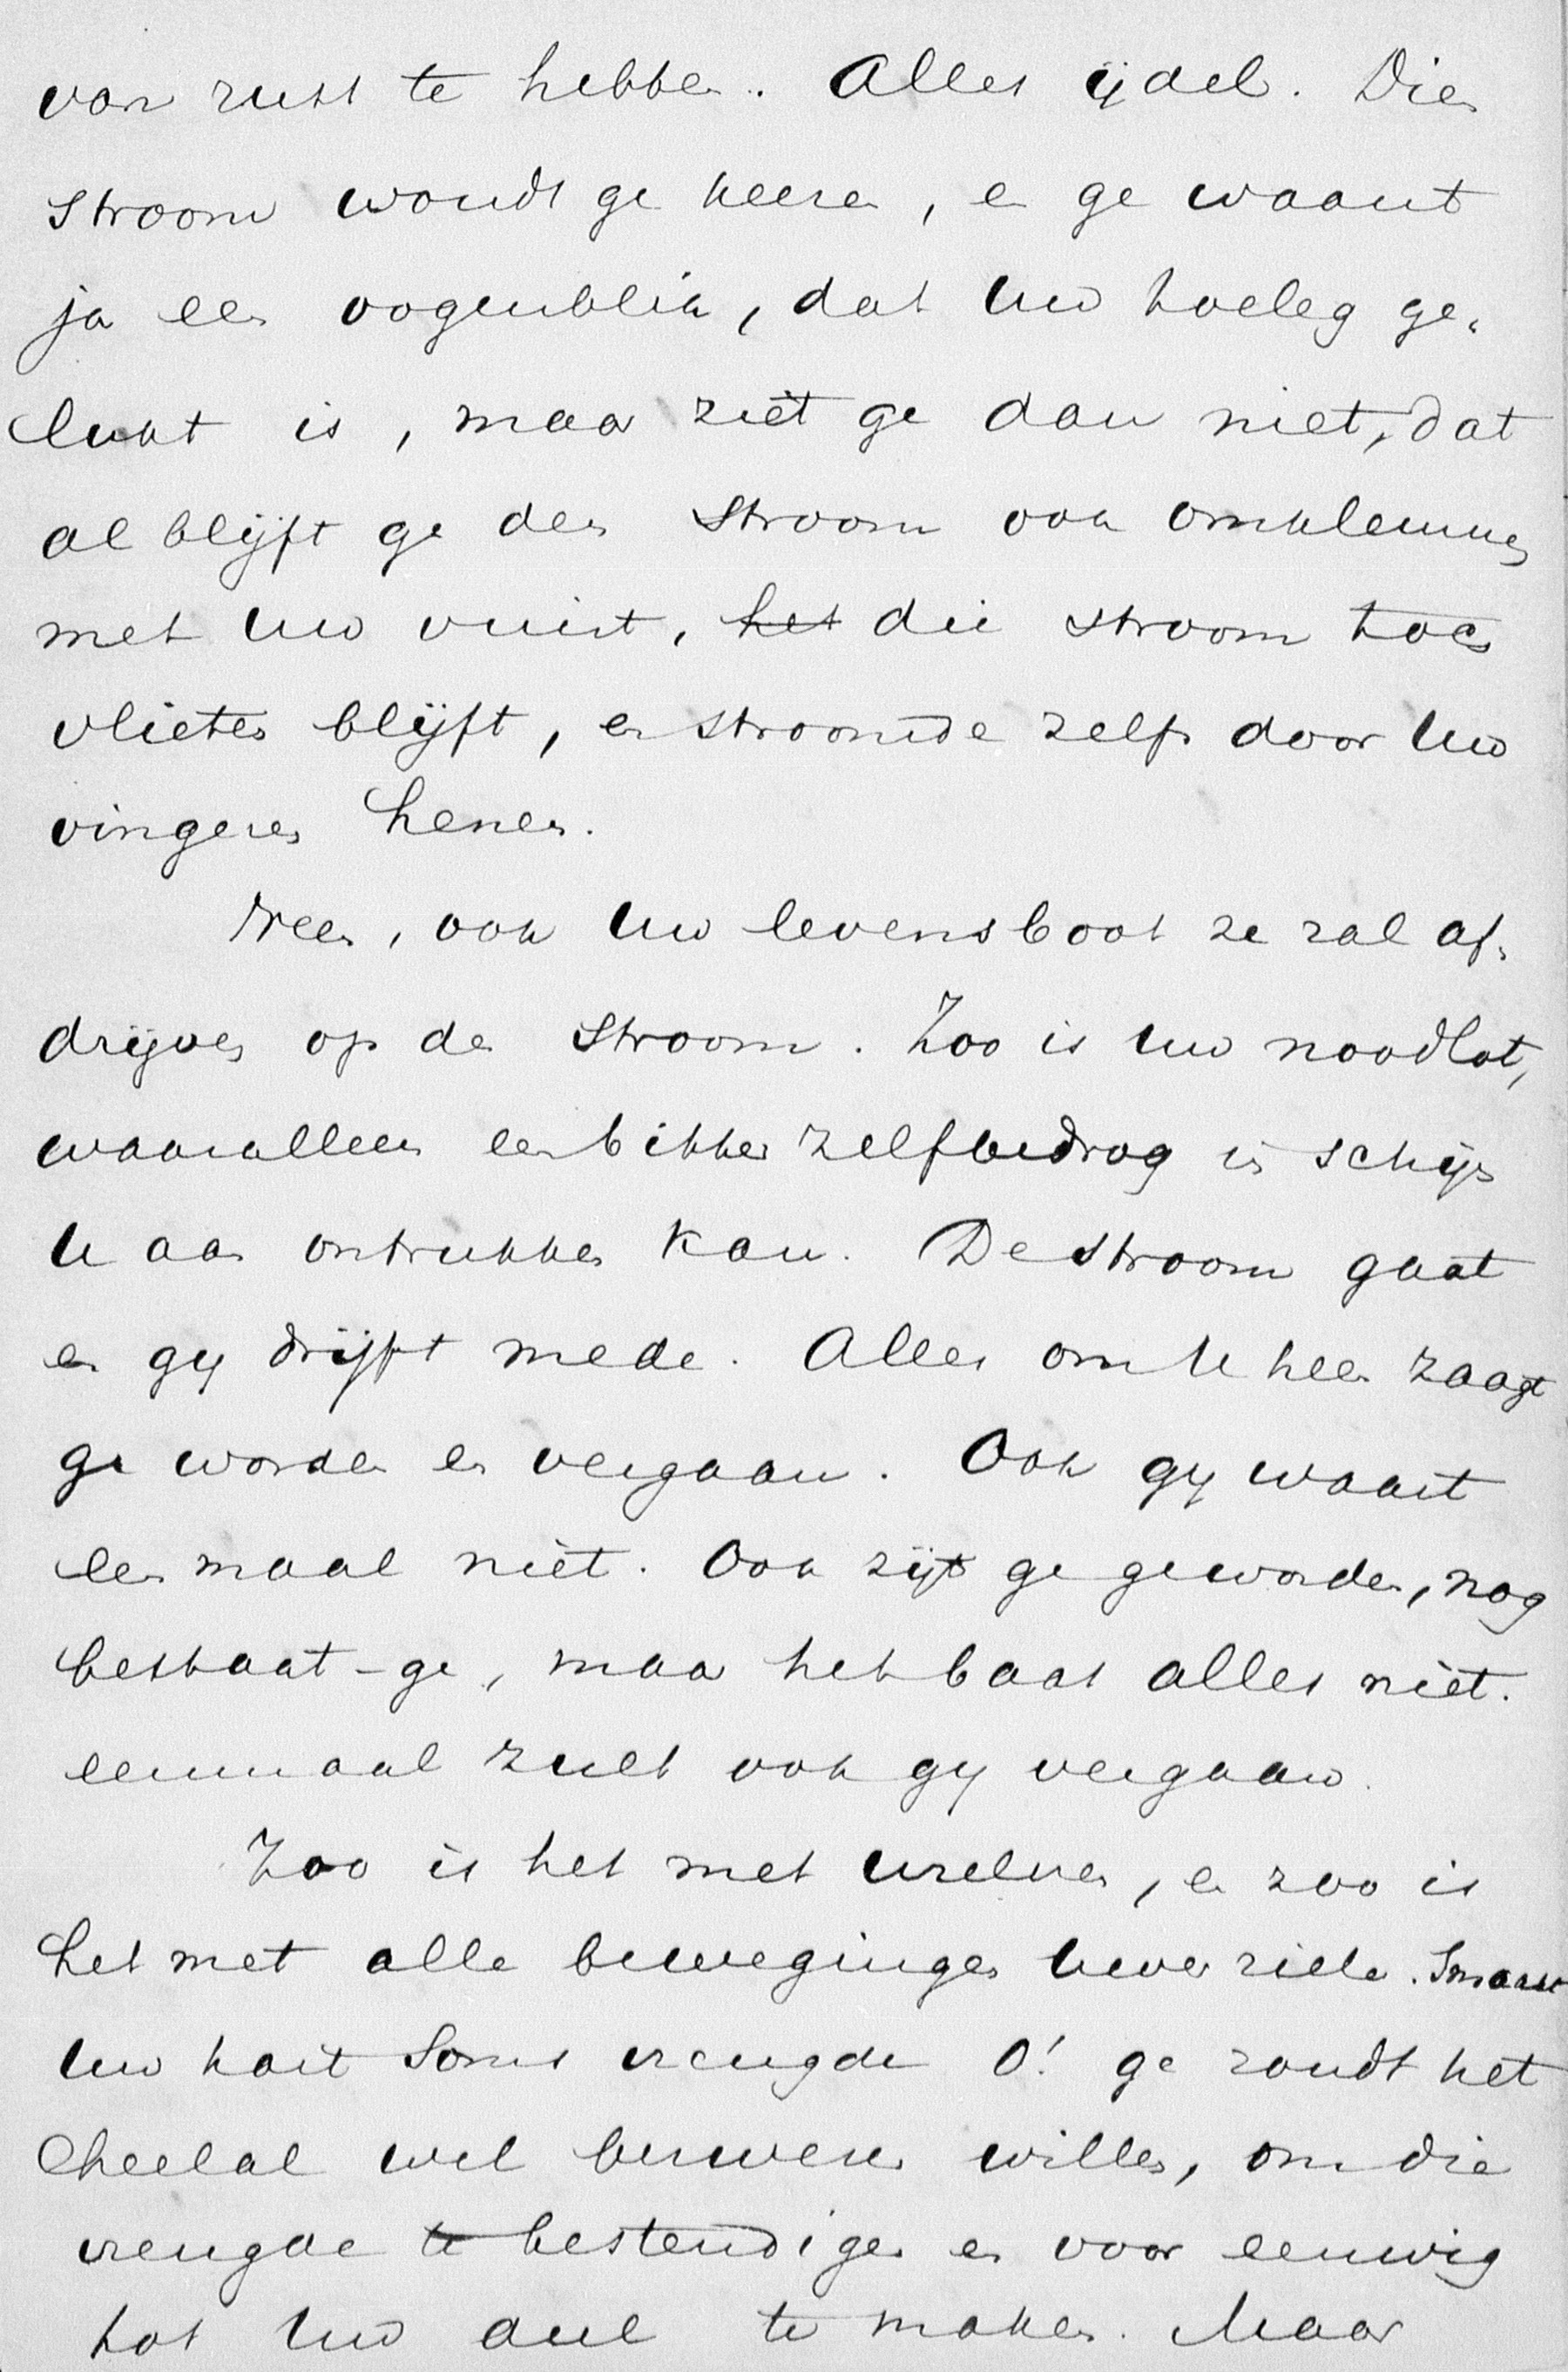 van rust te hebben. Alles ijdel. Dien
stroom woudt ge keeren, en ge waant
ja een oogenblik, dat Uw toeleg ge-
lukt is, maar ziet ge dan niet, dat
al blijft ge den stroom ook omklemmen
met Uw vuist, het die stroom toch
vlieten blijft, en stroomde zelfs door Uw
vingeren henen.
Neen, ook Uw levensboot ze zal af-
drijven op den stroom. Zoo is Uw noodlot,
waaraan alleen een bitter zelfbedrog in schijn
U aan ontrukken kan. De stroom gaat
en gy drijft mede. Alles om U heen zaagt
ge worden en vergaan. Ook gy waart
eenmaal niet. Ook zijt ge geworden, nog
bestaat-ge, maar het baat alles niet.
eenmaal zult ook gy vergaan.
Zoo is het met Uzelven, en zoo is
het met alle bewegingen Uwer ziele. Smaakt
Uw hart soms vreugde O! ge zoudt het
heelal wel bezweren willen, om die
vreugde te bestendigen en voor eeuwig
tot Uw deel te maken. Maar